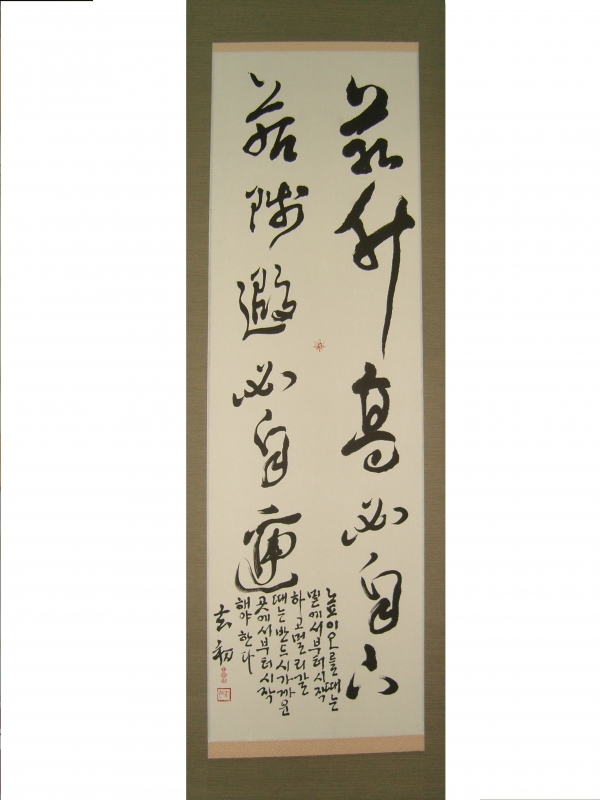 若升高必自下
若陟遐必自邇
높이오를때는
밑에서부터시작
하고멀리갈
때는반드시가까운
곳에서부터시작
해야한다